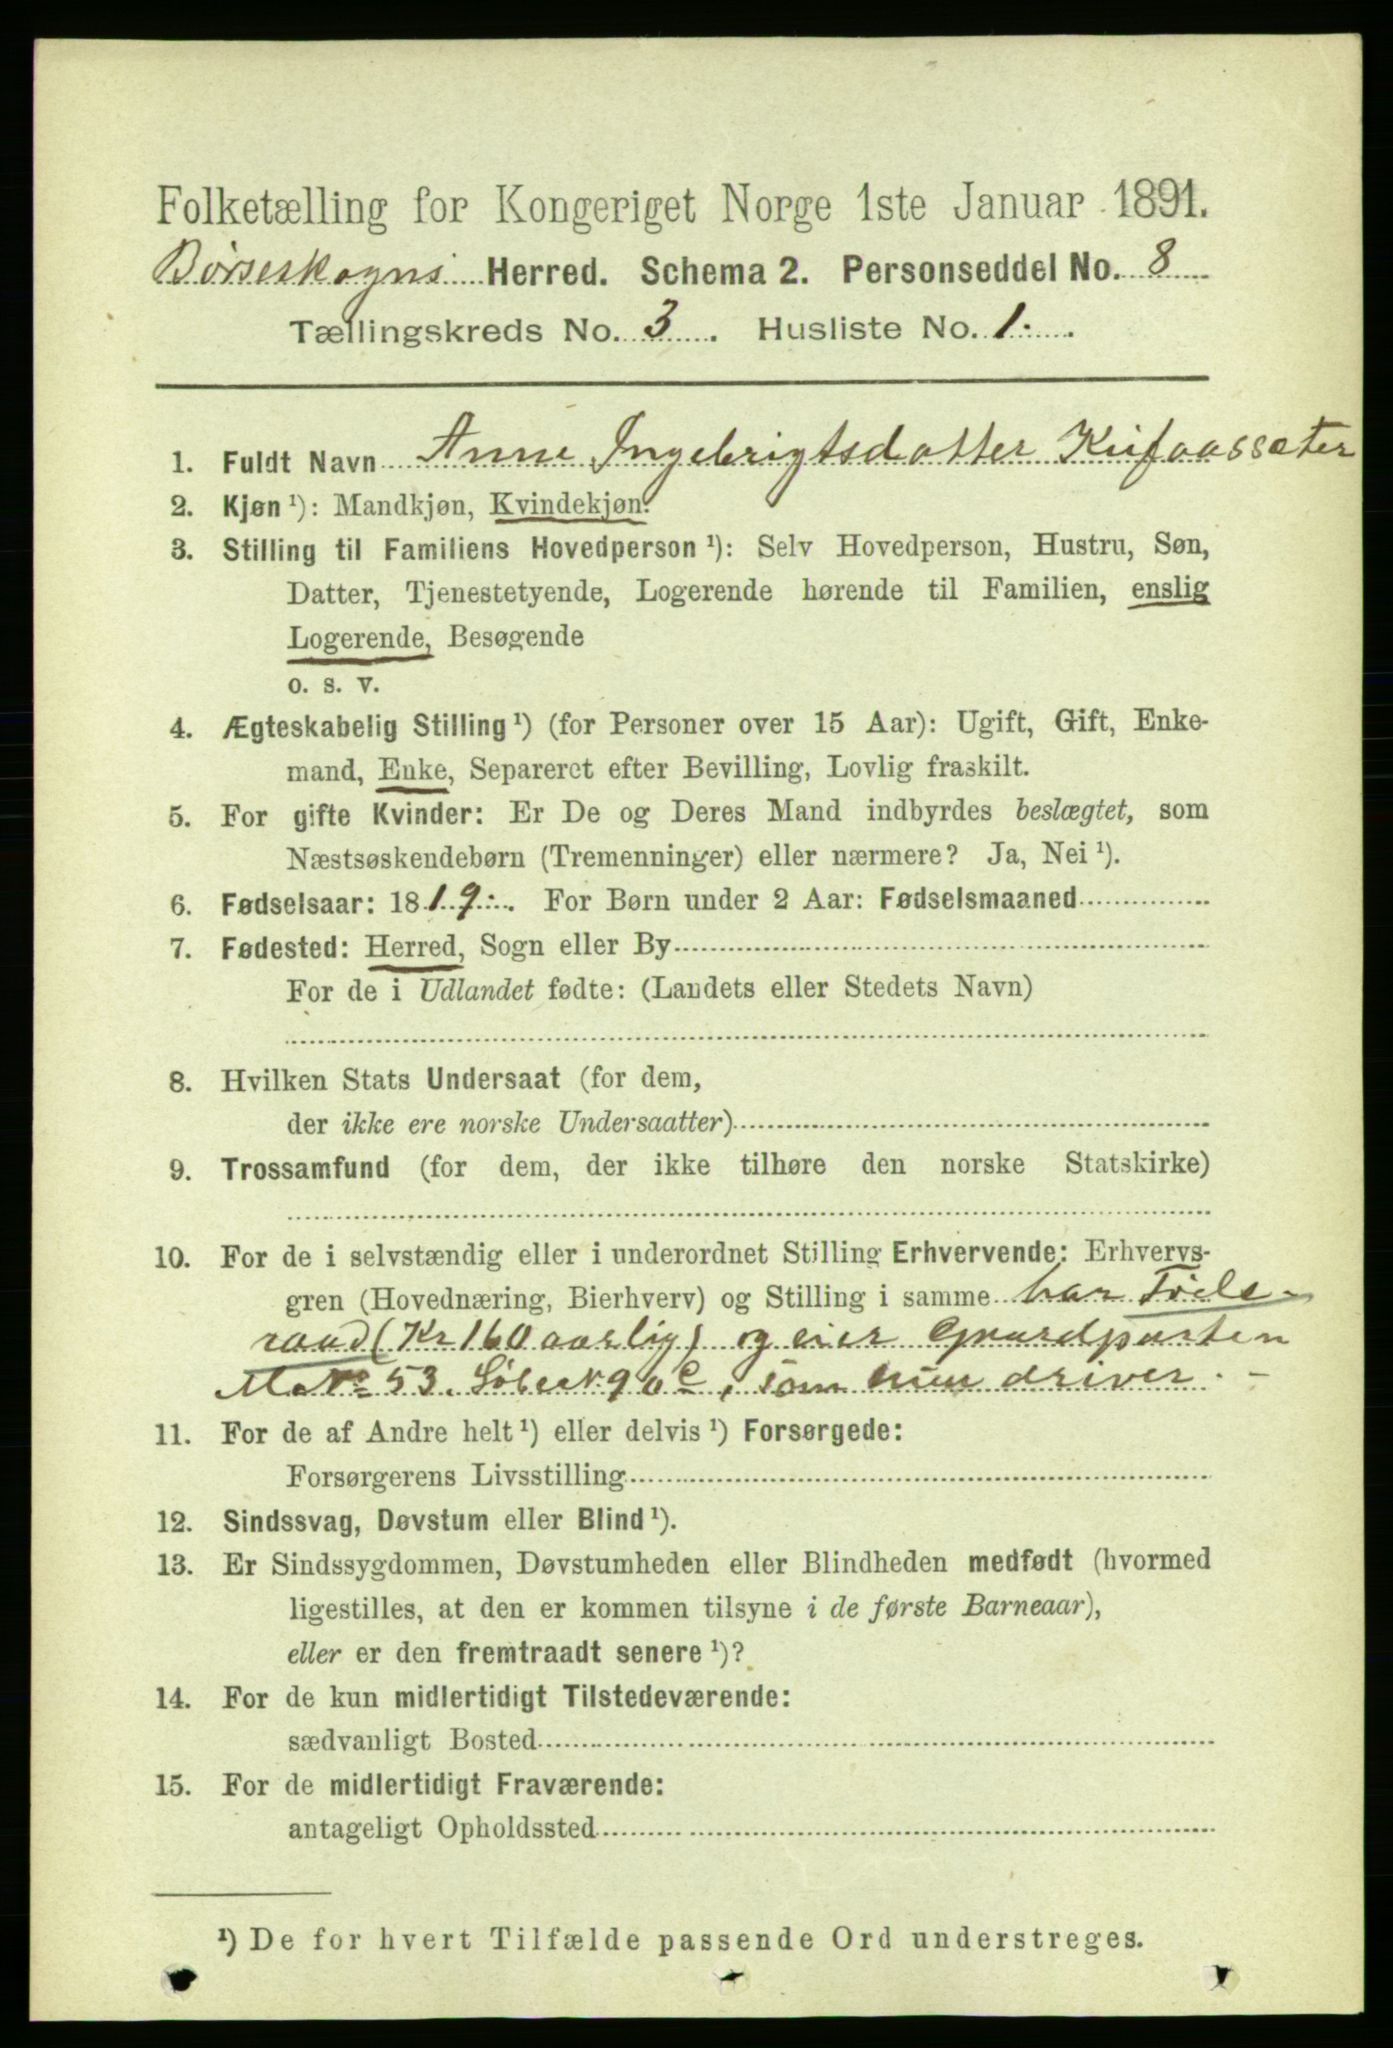 Folketælling for Kongeriget Norge 1ste Januar 1891.
Børseskogns Herred. Schema 2. Personseddel No. 8
Tællingskreds No. 3. Husliste No. 1.
1. Fuldt Navn Anne Ingebrigtsdatter
2. Kjøn ¹): Mandkjøn, Kvindekjøn.
3. Stilling til Familiens Hovedperson ¹): Selv Hovedperson, Hustru, Søn,
Datter, Tjenestetyende, Logerende hørende til Familien, enslig
Logerende, Besøgende
o. s. v.
4. Ægteskabelig Stilling ¹) (for Personer over 15 Aar): Ugift, Gift, Enke-
mand, Enke, Separeret efter Bevilling, Lovlig fraskilt.
5. For gifte Kvinder: Er De og Deres Mand indbyrdes beslægtet, som
Næstsøskendebørn (Tremenninger) eller nærmere? Ja, Nei ¹).
6. Fødselsaar: 1819. For Børn under 2 Aar: Fødselsmaaned
7. Fødested: Herred, Sogn eller By
For de i Udlandet fødte: (Landets eller Stedets Navn)
8. Hvilken Stats Undersaat (for dem,
der ikke ere norske Undersaatter)
9. Trossamfund (for dem, der ikke tilhøre den norske Statskirke)
10. For de i selvstændig eller i underordnet Stilling Erhvervende: Erhvervs-
gren (Hovednæring, Bierhverv) og Stilling i samme har Föde-
raad (Kr 160 aarlig) og eier Gaardparten
M. No 53. L No 90 c, som hun driver. -
11. For de af Andre helt ¹) eller delvis ¹) Forsørgede:
Forsørgerens Livsstilling
12. Sindssvag, Døvstum eller Blind ¹).
13. Er Sindssygdommen, Døvstumheden eller Blindheden medfødt (hvormed
ligestilles, at den er kommen tilsyne i de første Barneaar),
eller er den fremtraadt senere ¹)?
14. For de kun midlertidigt Tilstedeværende:
sædvanligt Bosted
15. For de midlertidigt Fraværende:
antageligt Opholdssted
¹) De for hvert Tilfælde passende Ord understreges.